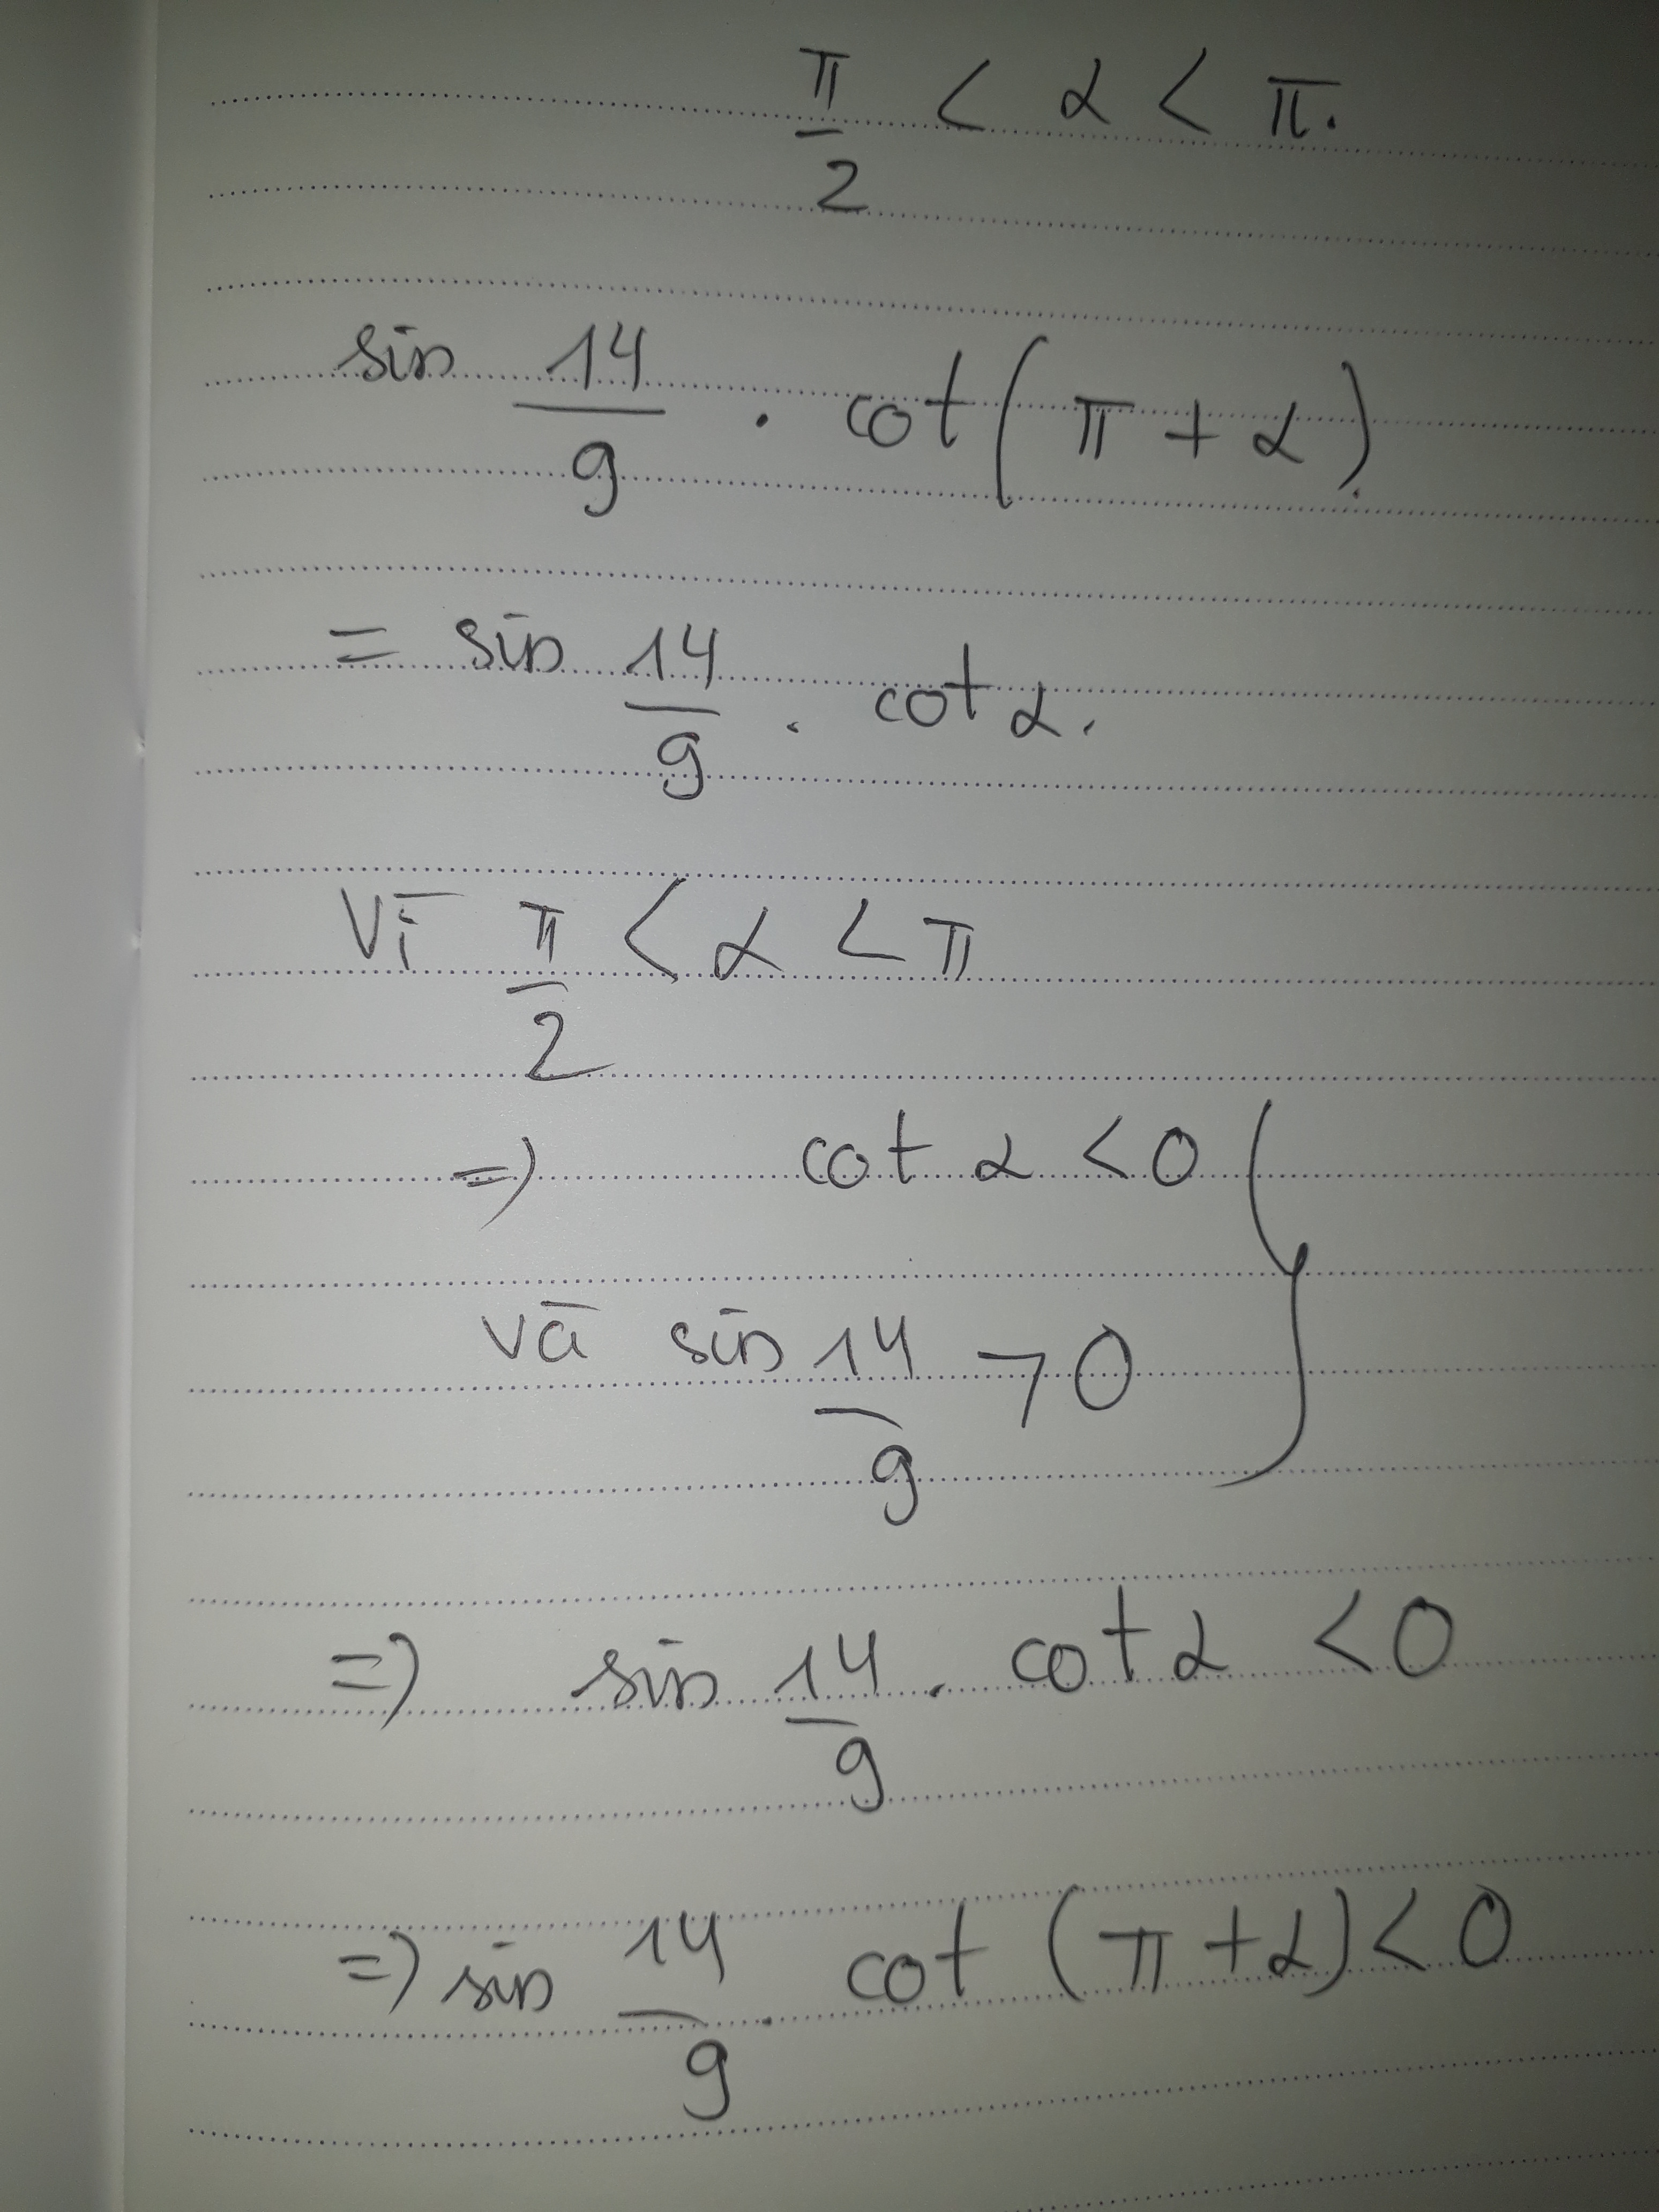 π/2 < α < π.
sin 14/9 . cot(π + α)
= sin 14/9 . cot α.
Vì π/2 < α < π
=> cot α < 0
và sin 14/9 > 0
=> sin 14/9 . cot α < 0
=> sin 14/9 . cot (π + α) < 0